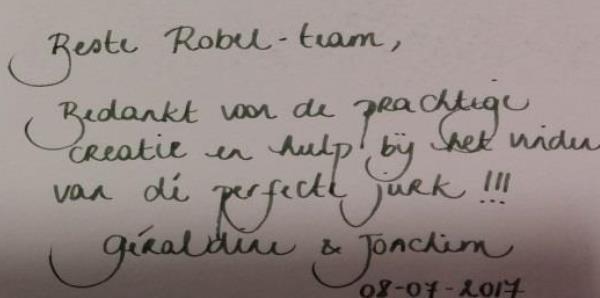 Beste Robel-team,
Bedankt voor de prachtige
creatie en hulp bij het vinden
van dé perfecte jurk !!!
Géraldine & Jonchim
08-07-2017